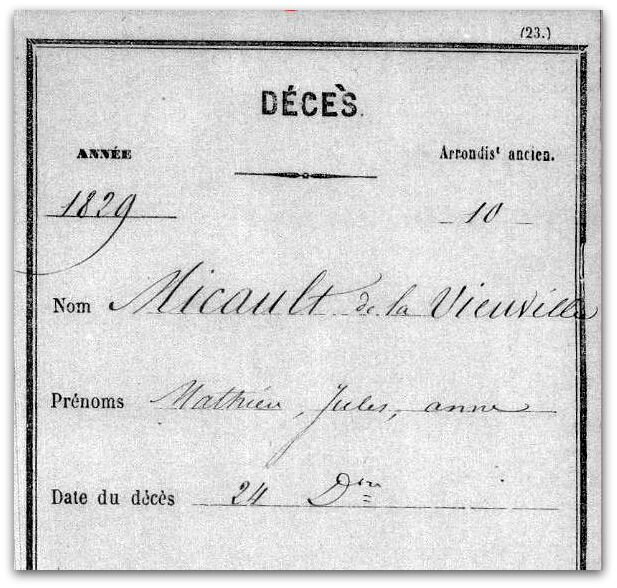 (23.)
DÉCÈS.
ANNÉE
Arrondis.t ancien.
1829
10
Nom Micault de la Vieuville
Prénoms Mathieu, Jules, anne
Date du décès 24 Dbre